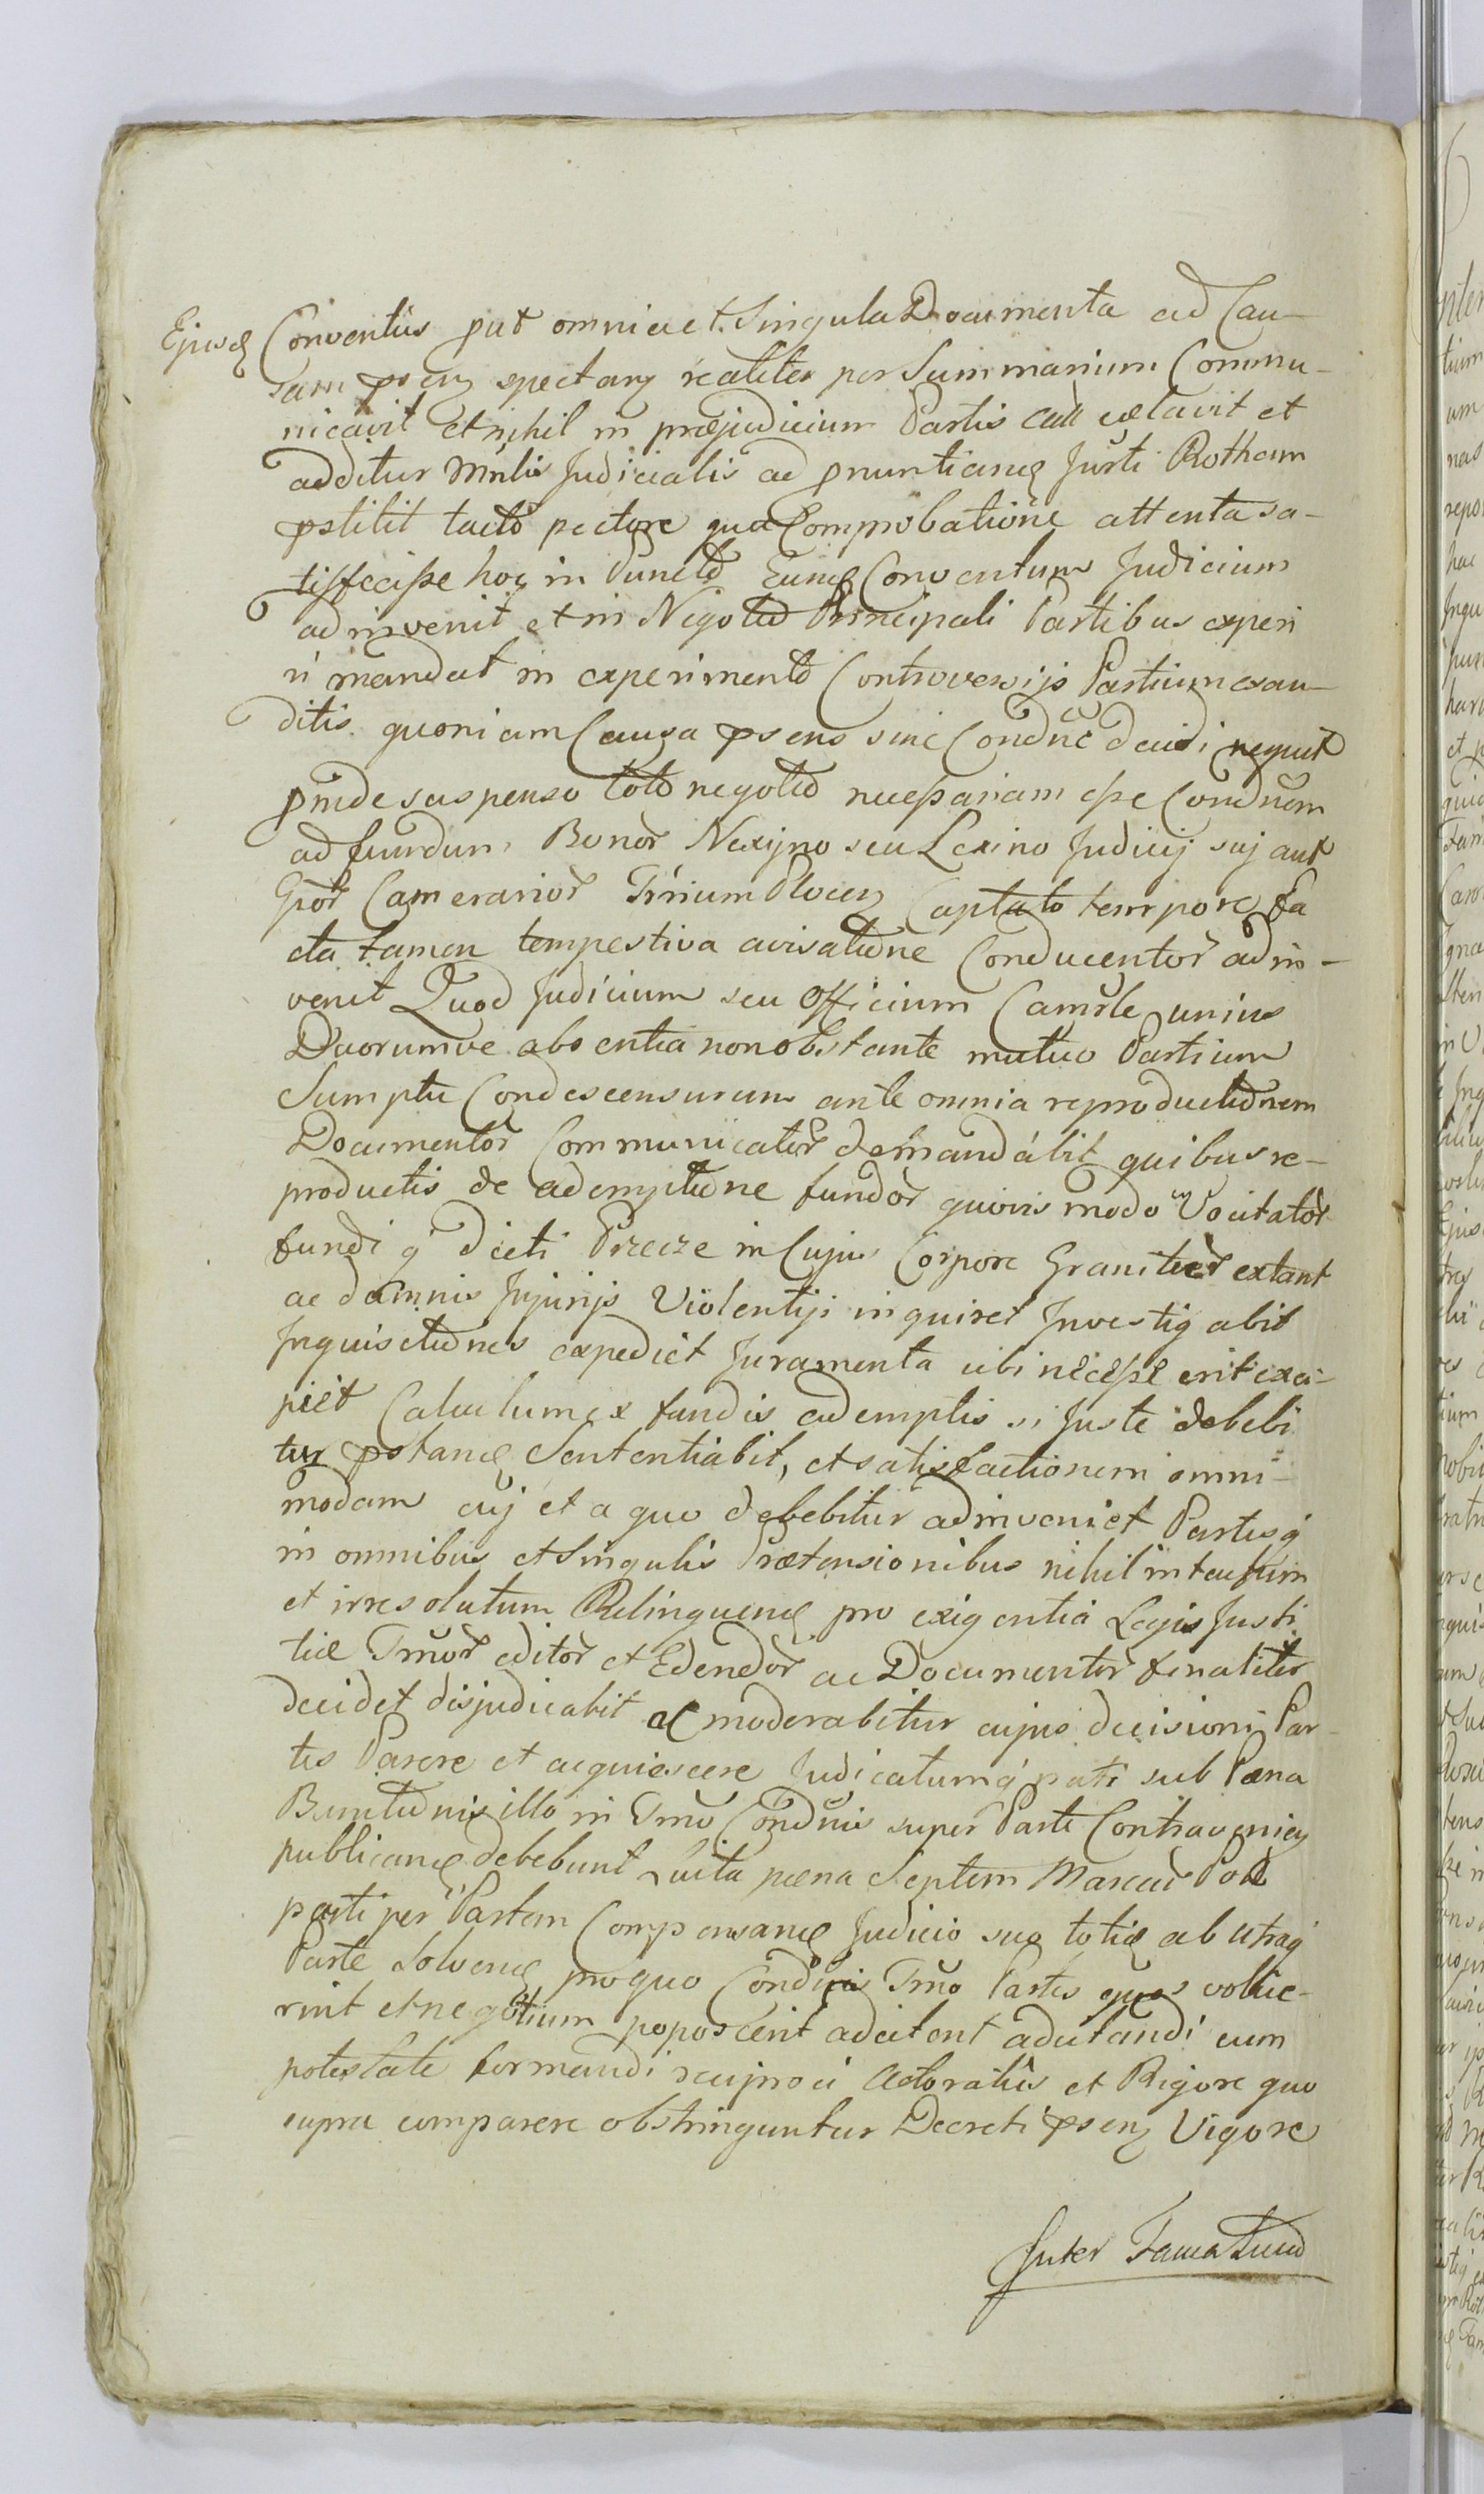 Ejusd Conventus put omnia et Singula Documenta ad Cau-
sam psen spectan realiter per Summarium Commu-
nicavit et nihil in præjudicium Partis celavit et
additur Mnlis Judicialis ad pnuntiand Jurti Rotham
pstitit tacto pectore qua Comprobatione attenta sa-
tisfecisse hoc in Puncto Eund Conventum Judicium
adinvenit et in Negotio Principali Partibus experi
ri mandat in experimento Controversijs Partium exau-
ditis quoniam Causa psens sine Condnẽ decidi nequit
pinde suspenso toto negotio necessariam esse Condnem
ad fundum Bonor Nexijno seu Lexino Judicij suj aut
Gnor Camerarior Trrium Plocen Captato tempore fa
cta tamen tempestiva avisatione Conducentor adin-
venit Quod Judicium seu Officium Camrle unius
Duorumve absentia non obstante mutuo Partium
Sumptu Condescensurum ante omnia reproductionem
Documentor Communicator demandabit quibus re-
productis de ademptione fundor quovis modo Vocitator
fundi q dicti Przecze in Cujus Corpore Granities extant
ac damnis Injurijs Violentijs inquiret Investigabit
Inquisitiones expediet Juramenta ubi necesse erit exci-
piet Calculum ex fundis ademptis si Juste debebi
tur pstand Sententiabit, et satisfactionem omni-
modam cuj et a quo debebitur adinveniet Partesq
in omnibus et Singulis Prætensionibus nihil intactum
et irresolutum Relinquend pro exigentia Legis Justi
tiæ Trmor editor et Edendor ac Documentor finaliter
decidet disjudicabit ac moderabitur cujus decisioni Par-
tes Parere et acquiescere Judicatumq pati sub Pæna
Bannitionis illo in Trmo Condnis super Parte Contravenien
publicand debebunt Luita pæna Septem Marcar Pol
parti per Partem Compensand Judicio suo toties ab utraq
Parte Solvend pro quo Condnis Trmo Partes quos volue-
rint et negotium poposcerit adcitent adcitandi cum
potestate formandi reciproci Actoratus et Rigore quo
supra comparere obstringuntur Decreti psen Vigore
Inter Famatum